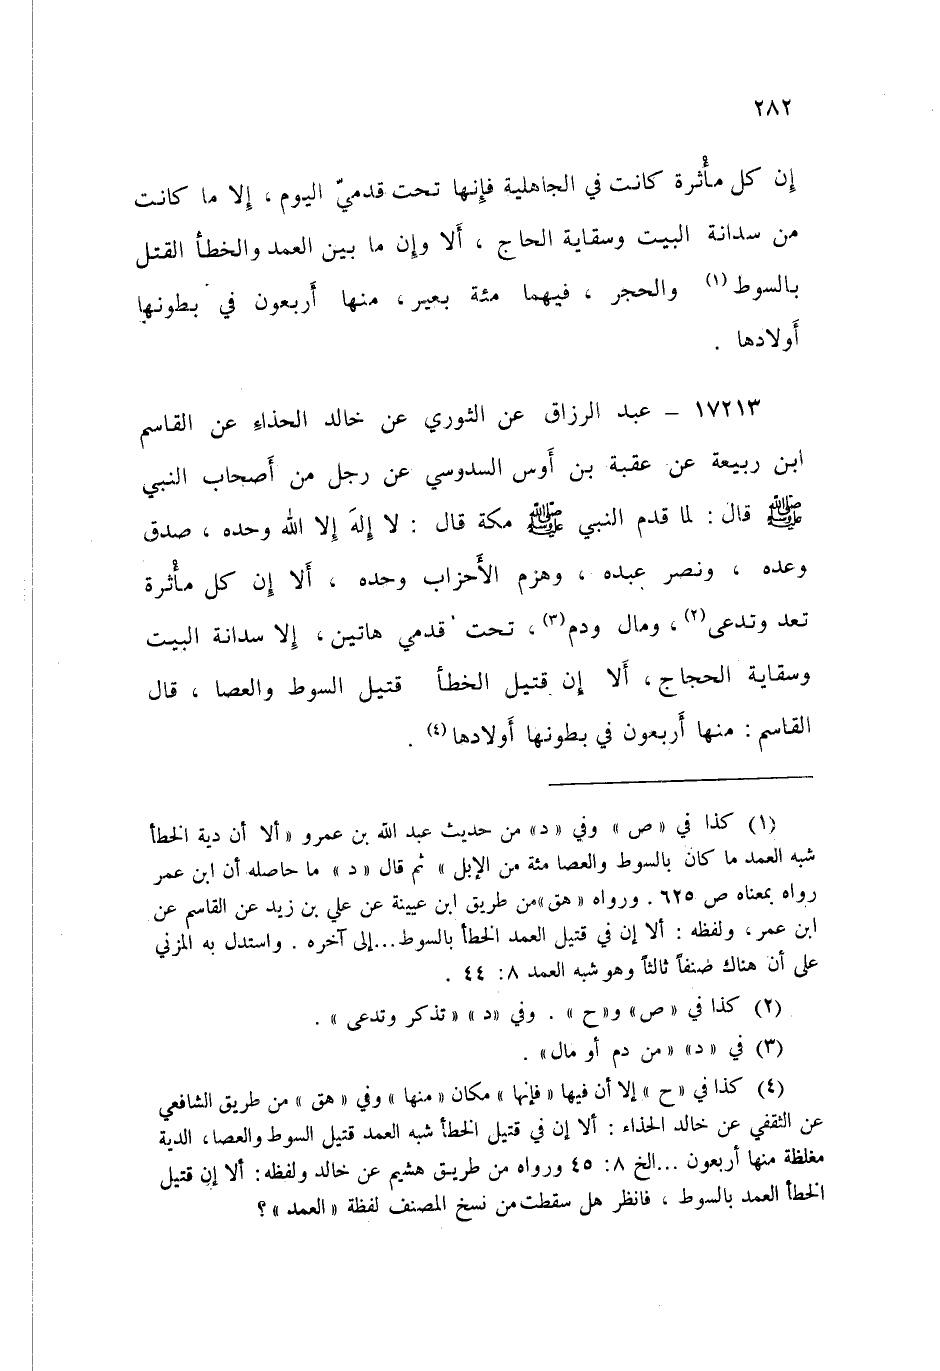 ٢٨٢
إن كل مأْثُرة كانت في الجاهلية فإنها تحت قدميّ اليوم ، إلا ما كانت
من سدانة البيت وسقاية الحاج ، أَلا وإن ما بين العمد والخطأ القتل
بالسوط (١) والحجر ، فيهما مئة بعير، منها أَربعون في بطونها
أَولادها .
١٧٢١٣ – عبد الرزاق عن الثوري عن خالد الحذاء عن القاسم
ابن ربيعة عن عقبة بن أَوس السدوسي عن رجل من أَصحاب النبي
ﷺ قال : لما قدم النبي ﷺ مكة قال : لا إِلهَ إلا الله وحده ، صدق
وعده ، ونصر عبده ، وهزم الأَحزاب وحده ، أَلا إن كل مأْثُرة
تعد وتدعى (٢) ، ومال ودم (٣) ، تحت قدمي هاتين ، إلا سدانة البيت
وسقاية الحجاج ، أَلا إن قتيل الخطأ قتيل السوط والعصا ، قال
القاسم : منها أَربعون في بطونها أَولادها (٤) .
(١) كذا في « ص » وفي « د » من حديث عبد الله بن عمرو « ألا أن دية الخطأ
شبه العمد ما كان بالسوط والعصا مئة من الإبل » ثم قال « د » ما حاصله أن ابن عمر
رواه بمعناه ص ٦٢٥ . ورواه « هق »من طريق ابن عيينة عن علي بن زيد عن القاسم عن
ابن عمر، ولفظه : ألا إن في قتيل العمد الخطأ بالسوط...إلى آخره . واستدل به المزني
على أن هناك صنفاً ثالثاً وهو شبه العمد ٨: ٤٤ .
(٢) كذا في « ص» و«ح » . وفي «د » «تذكر وتدعى » .
(٣) في « د» « من دم أو مال» .
(٤) كذا في « ح » إلا أن فيها « فإنها » مكان « منها » وفي « هق » من طريق الشافعي
عن الثقفي عن خالد الحذاء : ألا إن في قتيل الخطأ شبه العمد قتيل السوط والعصا، الدية
مغلظة منها أربعون ...الخ ٨: ٤٥ ورواه من طريق هشيم عن خالد ولفظه: ألا إن قتيل
الخطأ العمد بالسوط ، فانظر هل سقطت من نسخ المصنف لفظة « العمد » ؟